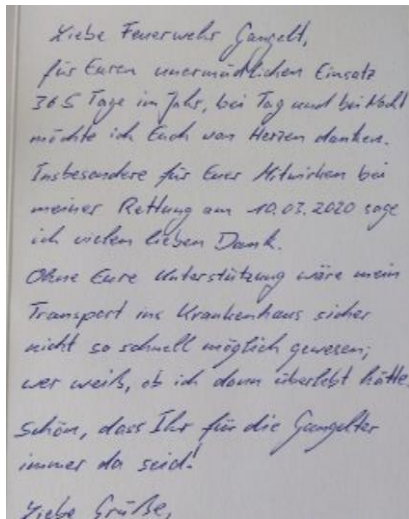 Liebe Feuerwehr Gangelt,
für Euren unermüdlichen Einsatz
365 Tage im Jahr, bei Tag und bei Nacht
möchte ich Euch von Herzen danken.
Insbesondere für Euer Mitwirken bei
meiner Rettung am 10.03.2020 sage
ich vielen lieben Dank.
Ohne Eure Unterstützung wäre mein
Transport ins Krankenhaus sicher
nicht so schnell möglich gewesen;
wer weiß, ob ich dann überlebt hätte
Schön, dass Ihr für die Gangelter
immer da seid!
Liebe Grüße,